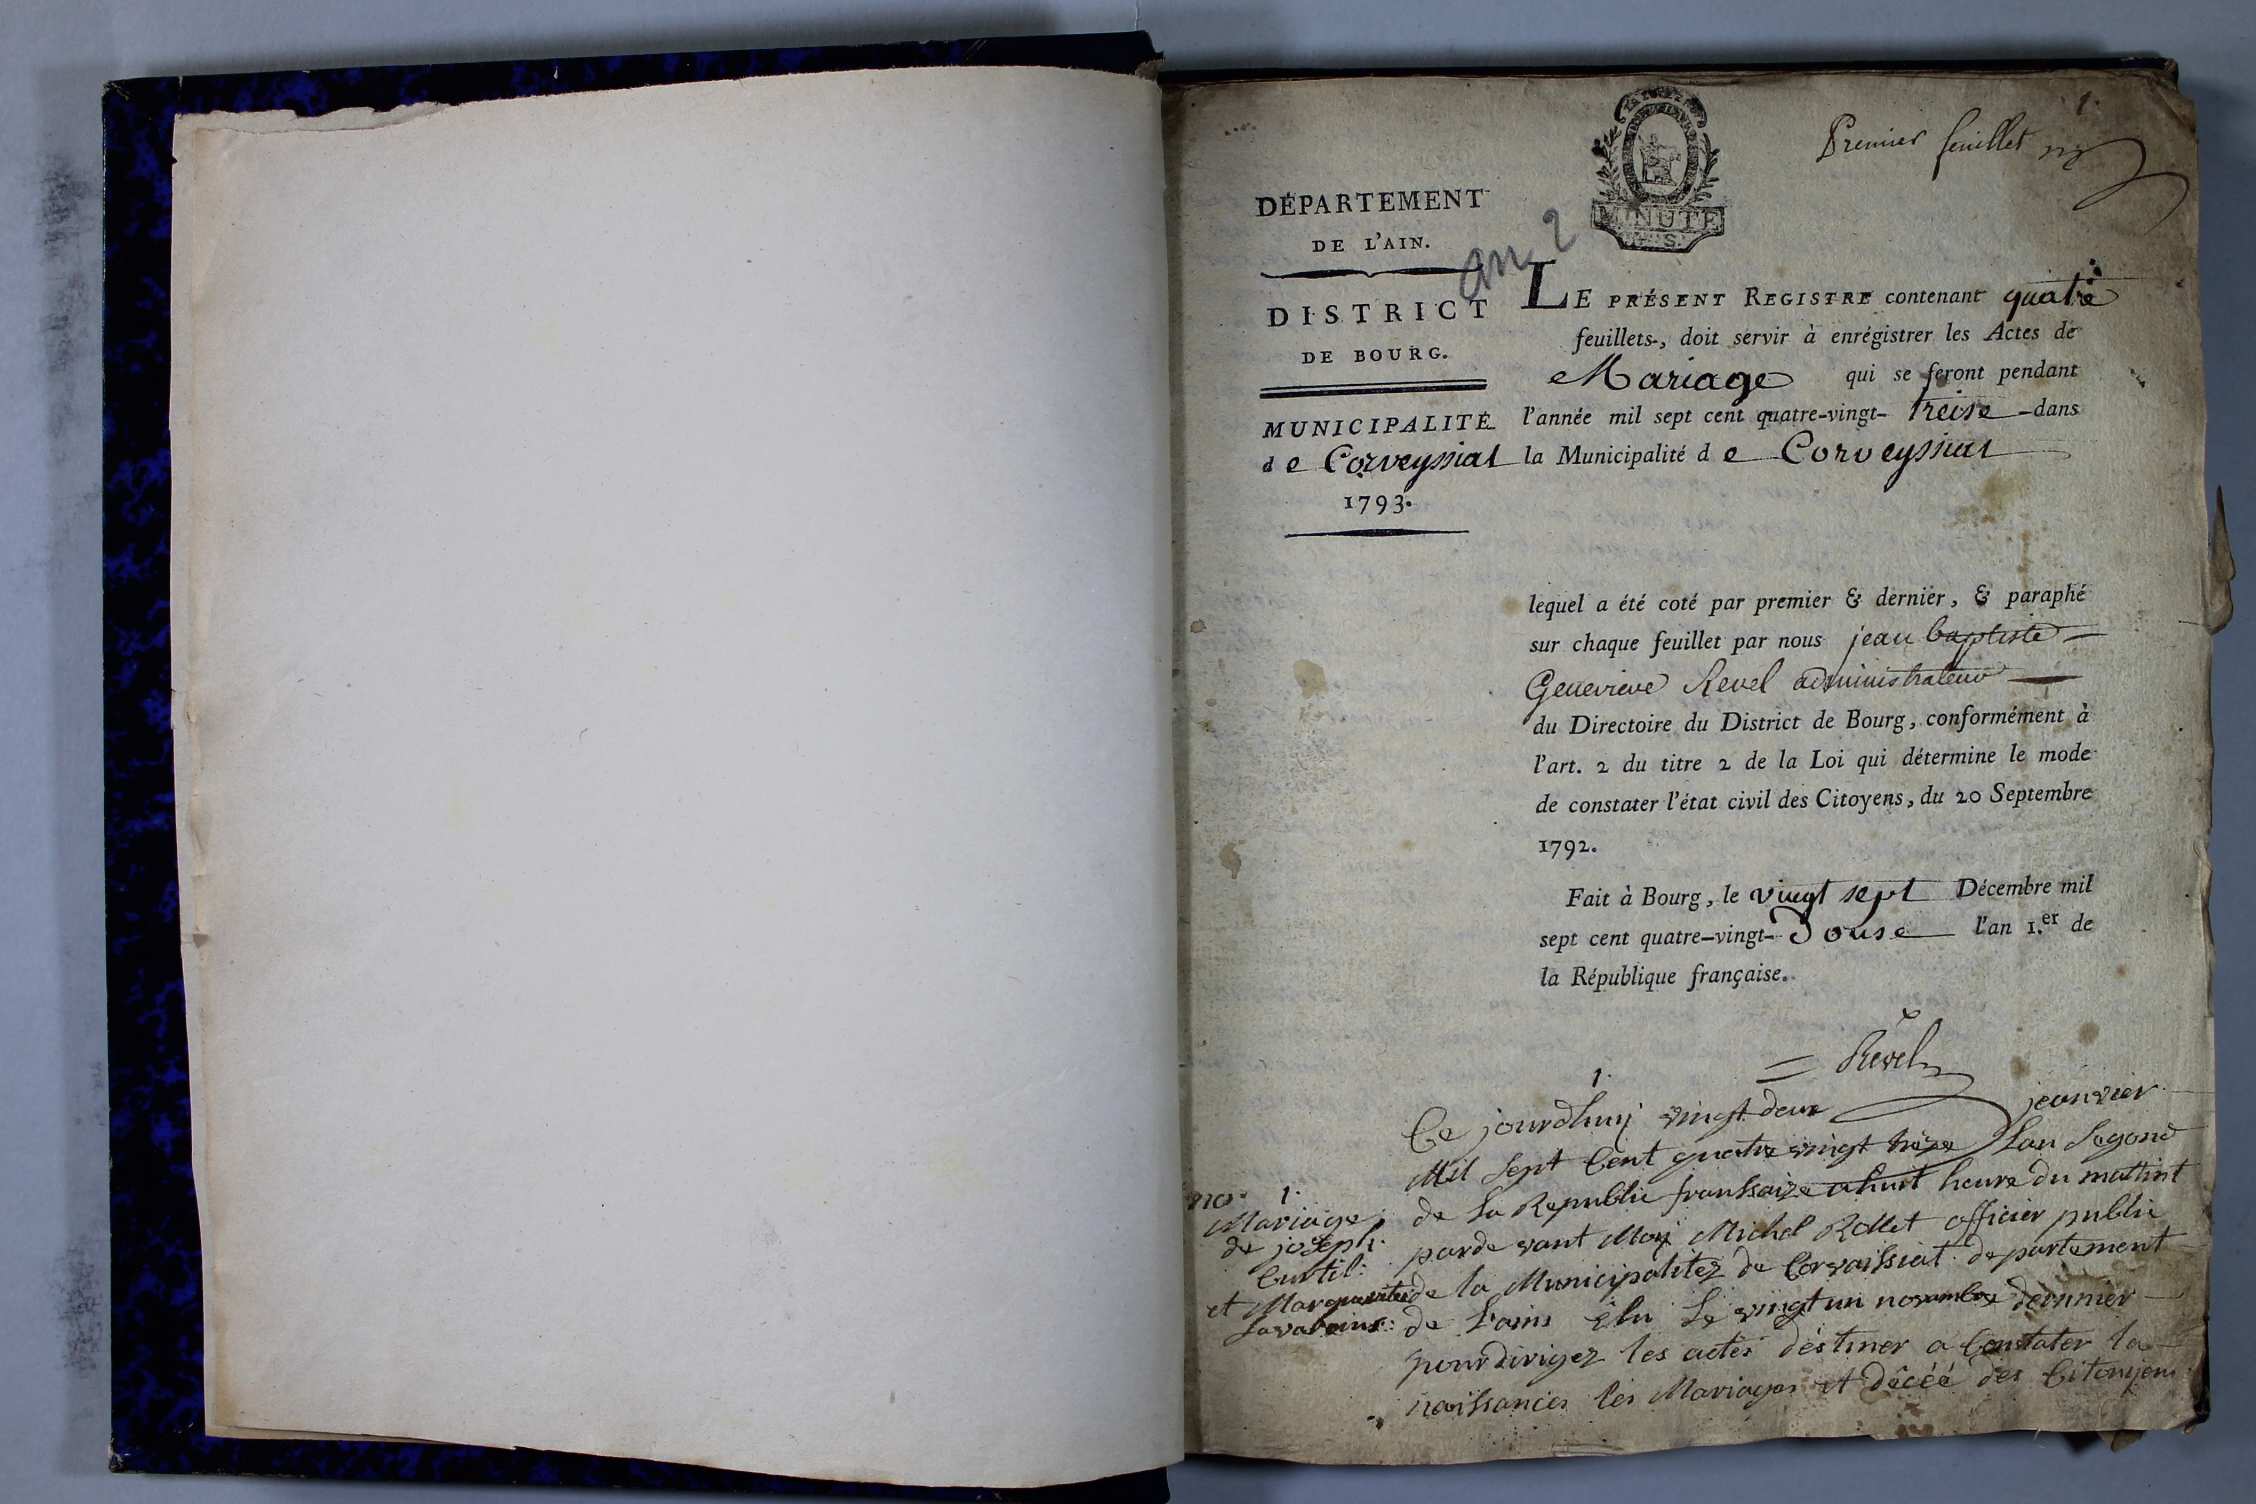 1.
Premier feuillet
MINUTE
DÉPARTEMENT
DE L'AIN.
an 2
DISTRICT
DE BOURG.
MUNICIPALITÉ
de Corveyssiat
1793.
LE PRÉSENT REGISTRE contenant quatre
feuillets, doit servir à enrégistrer les Actes de
Mariage qui se feront pendant
l'année mil sept cent quatre-vingt- Treise -dans
la Municipalité de Corveyssiat
lequel a été coté par premier & dernier, & paraphé
sur chaque feuillet par nous jean baptiste
Genevieve Revel administrateur
du Directoire du District de Bourg, conformément à
l'art. 2 du titre 2 de la Loi qui détermine le mode
de constater l'état civil des Citoyens, du 20 Septembre
1792.
Fait à Bourg, le vingt sept Décembre mil
sept cent quatre-vingt- Douse l'an 1.er de
la République française.
Revel
1.
Ce jourdhuij vingt deux jeanvier
Mil sept Cent quatre vingt treze Lan Segond
de La Republic franssaize a huit heure du mattint
parde vant Moy Michel Rollet officier public
de la Municipalitez de Corvaissiat departement
de Lains Elu Le vingt un novambre dernnier
pour dirigez les actes destiner a Constater la
naissances les Mariages et décéé des Citoyens
no. 1.
Mariage
de joseph
Curtil:
et Marguerite